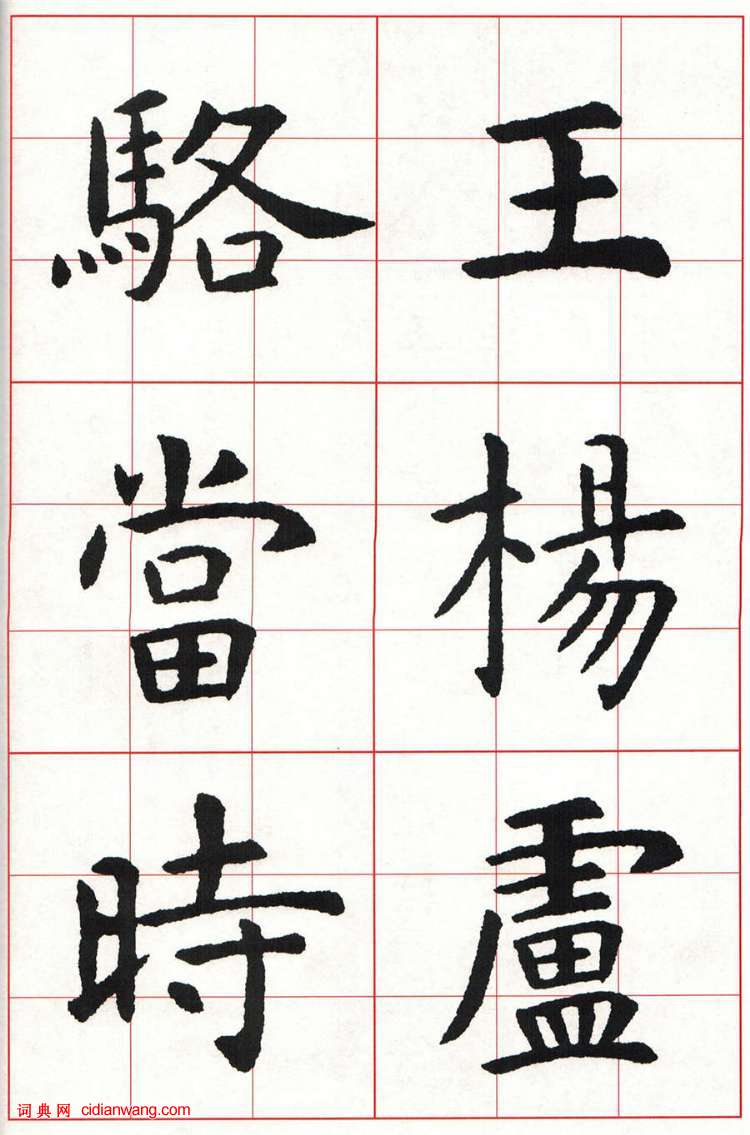 王楊盧
駱當時
词典网 cidianwang.com